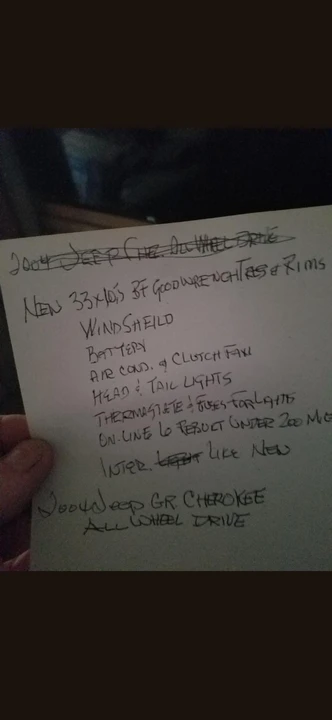 2004 JEEP ALL WHEEL DRIVE
NEW 33x10'S BF GOODWRENCH TIRES & RIMS
WINDSHEILD
BATTERY
AIR COND. & CLUTCH FAN
HEAD & TAIL LIGHTS
THERMOSTETE & FUSES FOR LIGHTS
ON-LINE 6 REBUILT UNDER 200 MILE
INTER. LIKE NEW
2004 JEEP GR. CHEROKEE
ALL WHEEL DRIVE